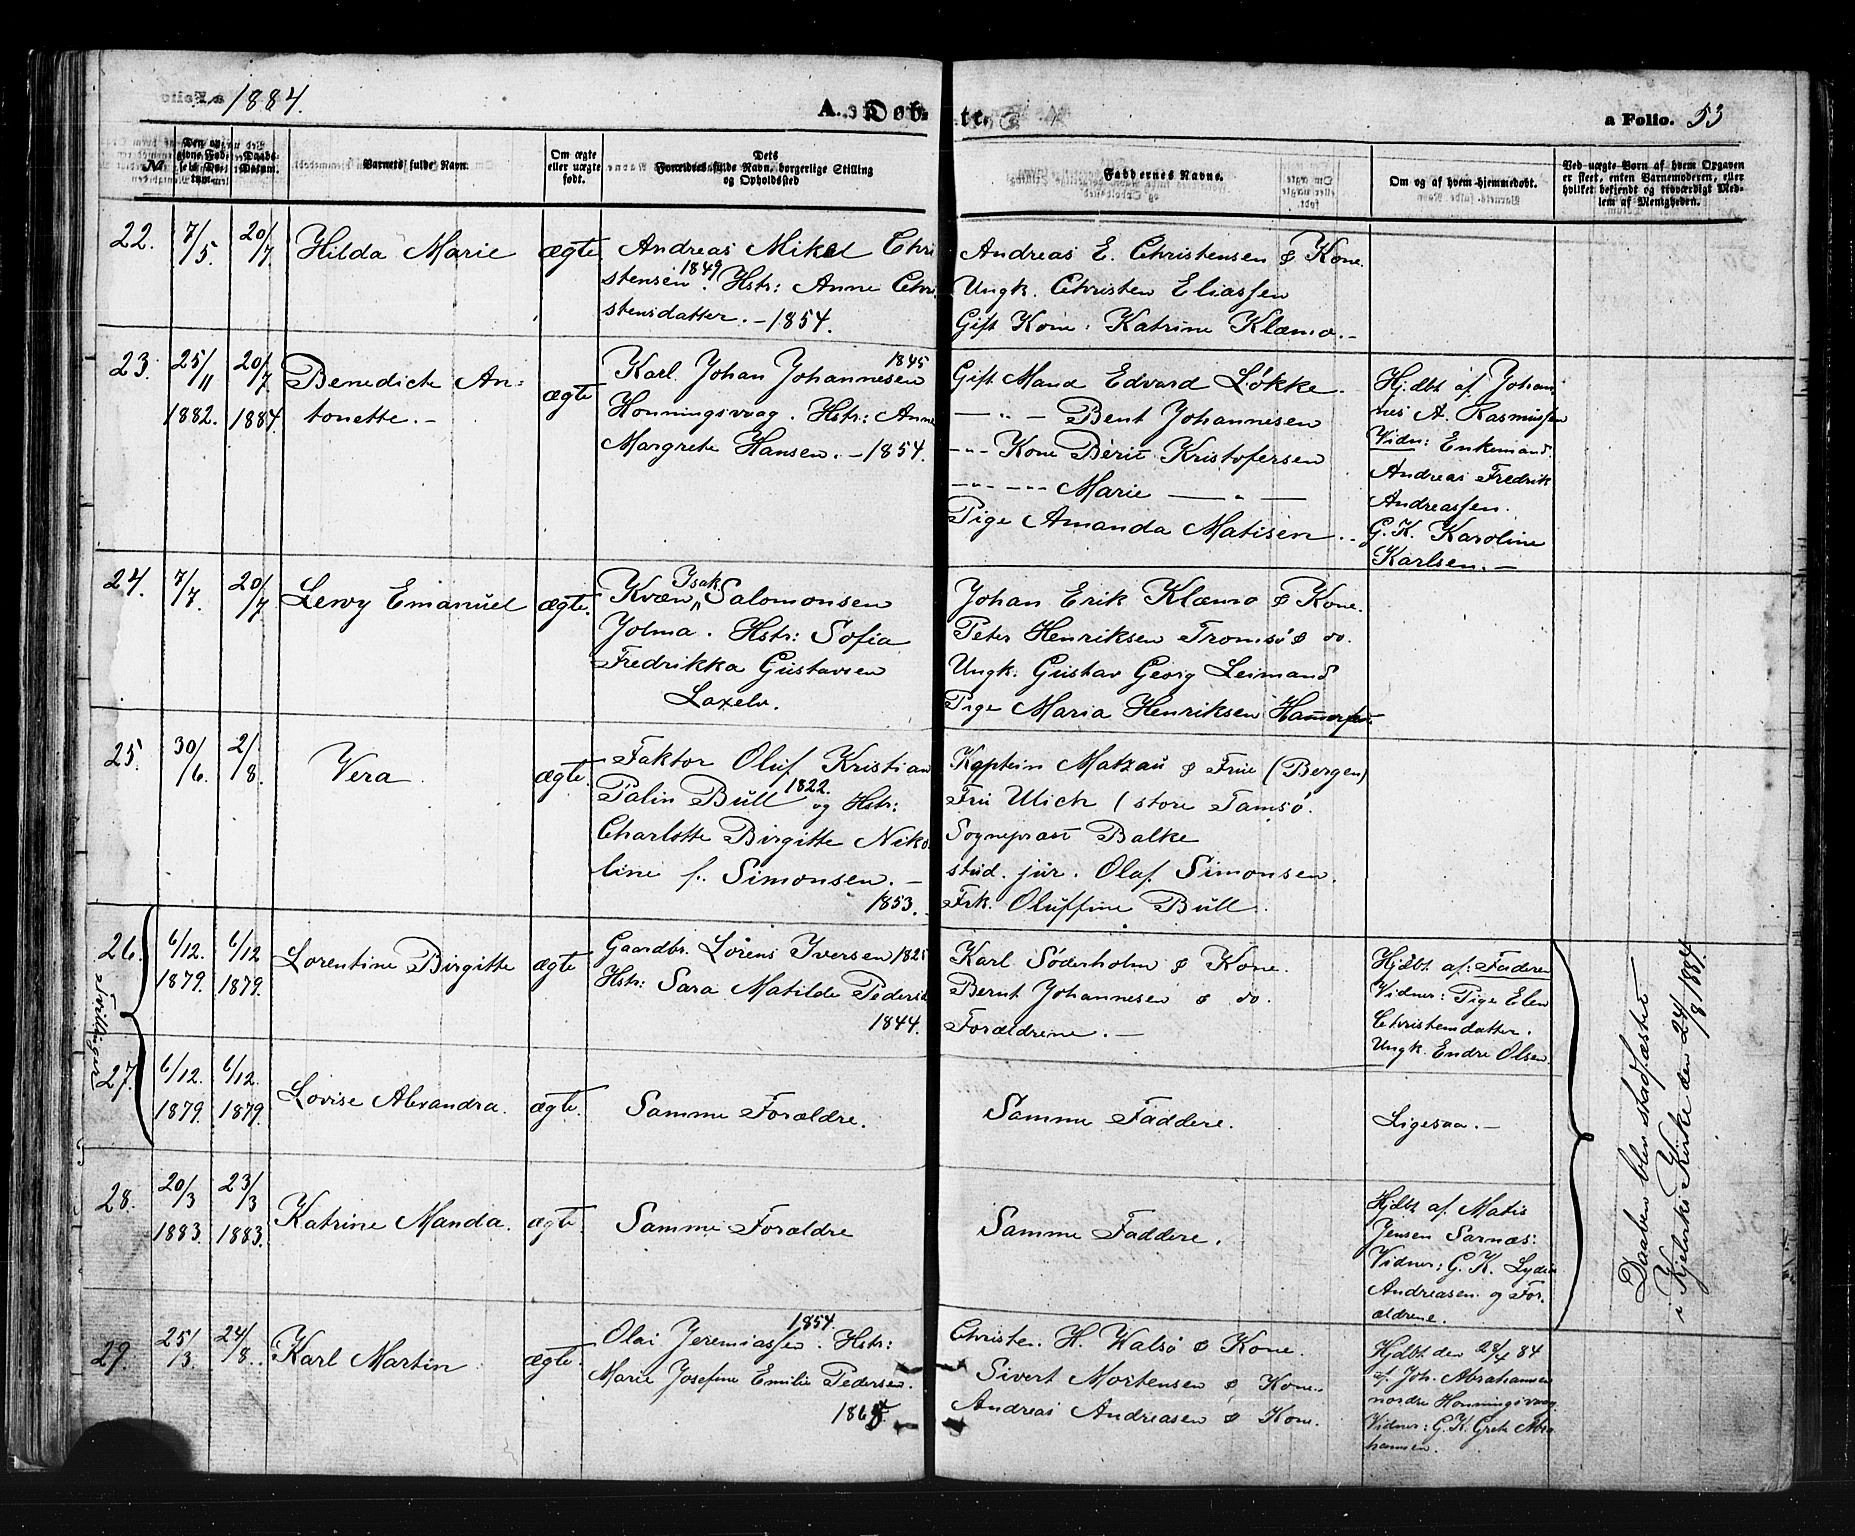 1884.
A. Døbte.
a Folio. 53
№
Den opgivne Fødsels Datum.
Daabs-Datum.
Barnets fulde Navn.
Om ægte eller uægte født.
Dets
Forældres fulde Navn, borgerlige Stilling
og Opholdssted
Faddernes Navne.
Om og af hvem hjemmedøbt.
Ved uægte Børn af hvem Opgaven
er skeet, enten Barnemoderen, eller
hvilket bekjendt og troværdigt Med-
lem af Menigheden.
22. 7/5. 20/7 Hilda Marie ægte
Andreas Mikel Chri
stensen 1849. Hstr: Anne Chri
stensdatter. - 1854.
Andreas E. Christensen & Kone.
Ungk. Christen Eliassen
Gift Kone. Katrine Klæmo. -
23. 25/11 1882. 20/7 1884.
Benedicte An:
tonette. -
ægte
Karl Johan Johannesen 1845
Honningsvaag. Hstr: Anne
Margrete Hansen. - 1854.
Gift Mand Edvard Løkke.
— " — Bent Johannesen
- " - Kone Berit Kristofersen
- " - --- Marie — " —
Pige Amanda Matisen. -
Hjdbt af Johan
nes A. Rasmussen
Vidn: Enkemand
Andreas Fredrik
Andreassen.
G. K. Karoline
Karlsen. -
24. 7/7. 20/7 Lewy Emanuel ægte.
Kvæn Isak Salomonsen
Jolma. Hstr: Sofia
Fredrikka Gustavsen
Laxelv.
Johan Erik Klæmo & Kone.
Peter Henriksen Tromsø & do.
Ungk. Gustav Georg Leimand
Pige Maria Henriksen Hammerfest
25. 30/6. 2/8. Vera ægte.
Faktor Oluf Kristian
Palin Bull 1822. og Hstr:
Charlotte Birgitte Niko
line f. Simonsen. -
1853.
Kaptein Matzau & Frue (Bergen)
Fru Ulich (store Tamsø.
Sognepræst Balke
stud. jur. Olaf Simonsen.
Frk. Oluffine Bull.
Tvillinger
26. 6/12. 1879. 6/12 1879. Lorentine Birgitte ægte
Gaardbr. Lorens Iversen 1825
Hstr: Sara Matilde Peders
1844.
Karl Söderholm & Kone.
Bernt Johannesen & do.
Forældrene. -
Hjdbt af: Faderen
Vidner: Pige Elen
Christensdatter.
Ungk. Endre Olsen
27. 6/12. 1879. 6/12. 1879. Lovise Alexandra. ægte.
Samme Forældre.
Samme Faddere.
Ligesaa. -
28. 20/3 1883. 23/3 1883. Katrine Manda. ægte
Samme Forældre
Samme Faddere.
Hjdbt af. Matis
Jensen Sarnæs:
Vidner: G. K. Lydia
Andreasen og For.
ældrene.
Daaben blev stadfæstet
i Kjelviks Kirke den 24/8 1884.
29. 25/3. 24/8. Karl Martin ægte.
Olai Jeremiassen 1854. Hstr:
Marie Josefine Emilie Pedersen.
Christen. H. Valsø & Kone.
Sivert Mortensen & Kone.
Andreas Andreasen & Kone.
Hjdbt den 28/4 84
af Joh. Abrahamsen
nordre Honningsvaag
Vidner: G. K. Grete Abra
hamsen.